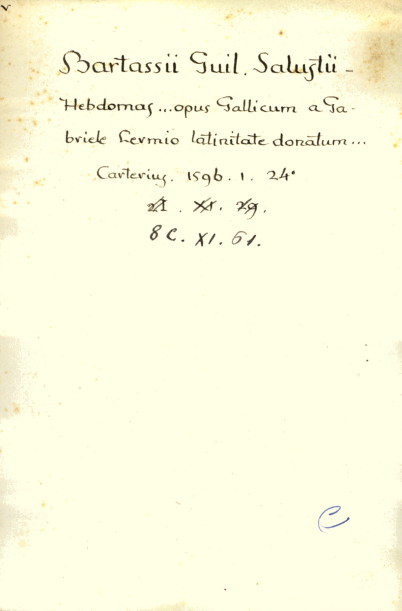 Bartassii Guil. Salustii -
Hebdomas ... opus Gallicum a Ga-
briele Lermio latinitate donatum ...
Carterius. 1596. 1. 24°
21. XI. 29.
8 C. XI. 61.
C